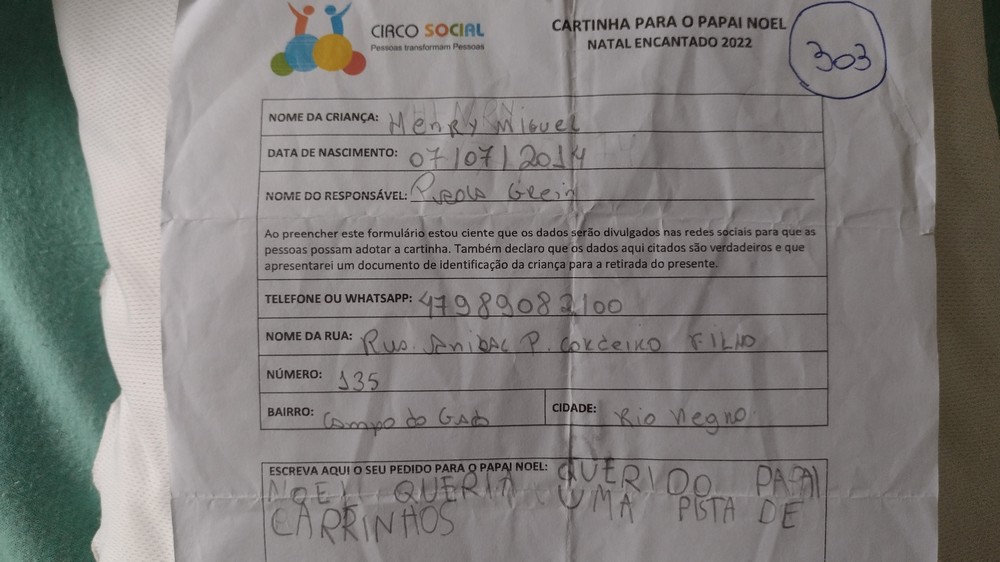 CIRCO SOCIAL
Pessoas transformam Pessoas
CARTINHA PARA O PAPAI NOEL
NATAL ENCANTADO 2022
303
NOME DA CRIANÇA: Henry Miguel
DATA DE NASCIMENTO: 07/07/2014
NOME DO RESPONSÁVEL: Grein
Ao preencher este formulário estou ciente que os dados serão divulgados nas redes sociais para que as
pessoas possam adotar a cartinha. Também declaro que os dados aqui citados são verdadeiros e que
apresentarei um documento de identificação da criança para a retirada do presente.
TELEFONE OU WHATSAPP: 47989082100
NOME DA RUA: Rua. P. Cordeiro FILHO
NÚMERO: 135
BAIRRO: Campo do Gado CIDADE: Rio Negro
ESCREVA AQUI O SEU PEDIDO PARA O PAPAI NOEL: QUERIDO PAPAI
NOEL QUERIA UMA PISTA DE
CARRINHOS